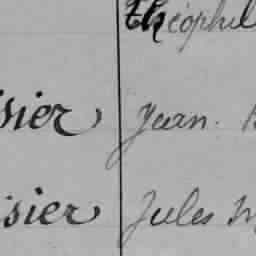 Théophil
sier Jean.
sier Jules